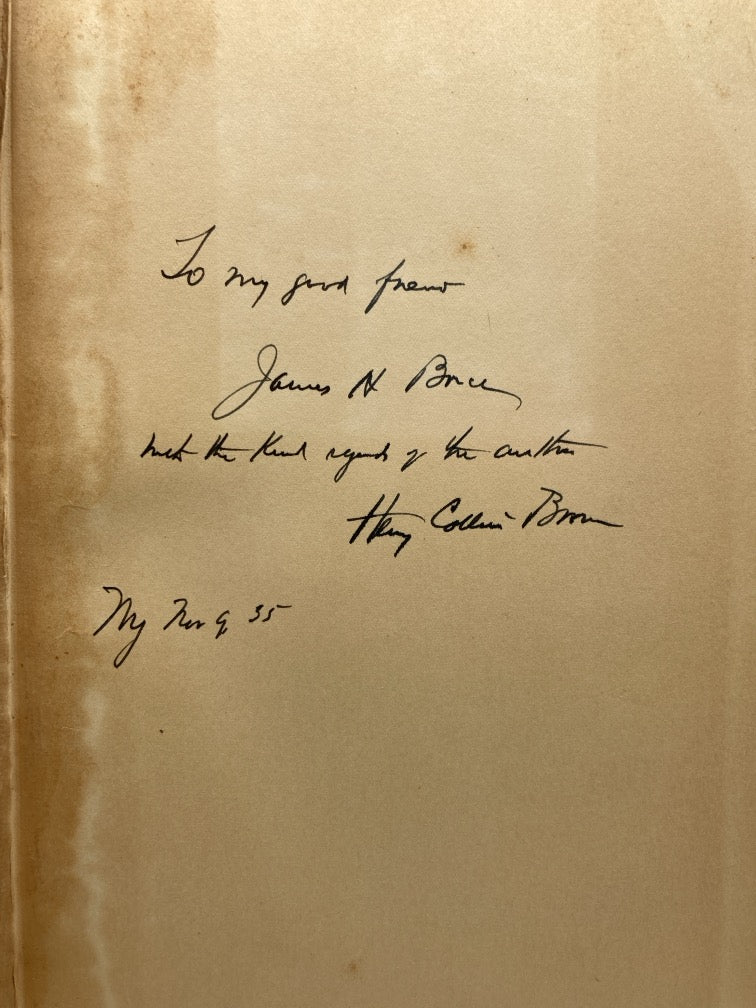 To my good friend
James H
with the kind regards of the author
Henry Collins Brown
NY Nov 9 35